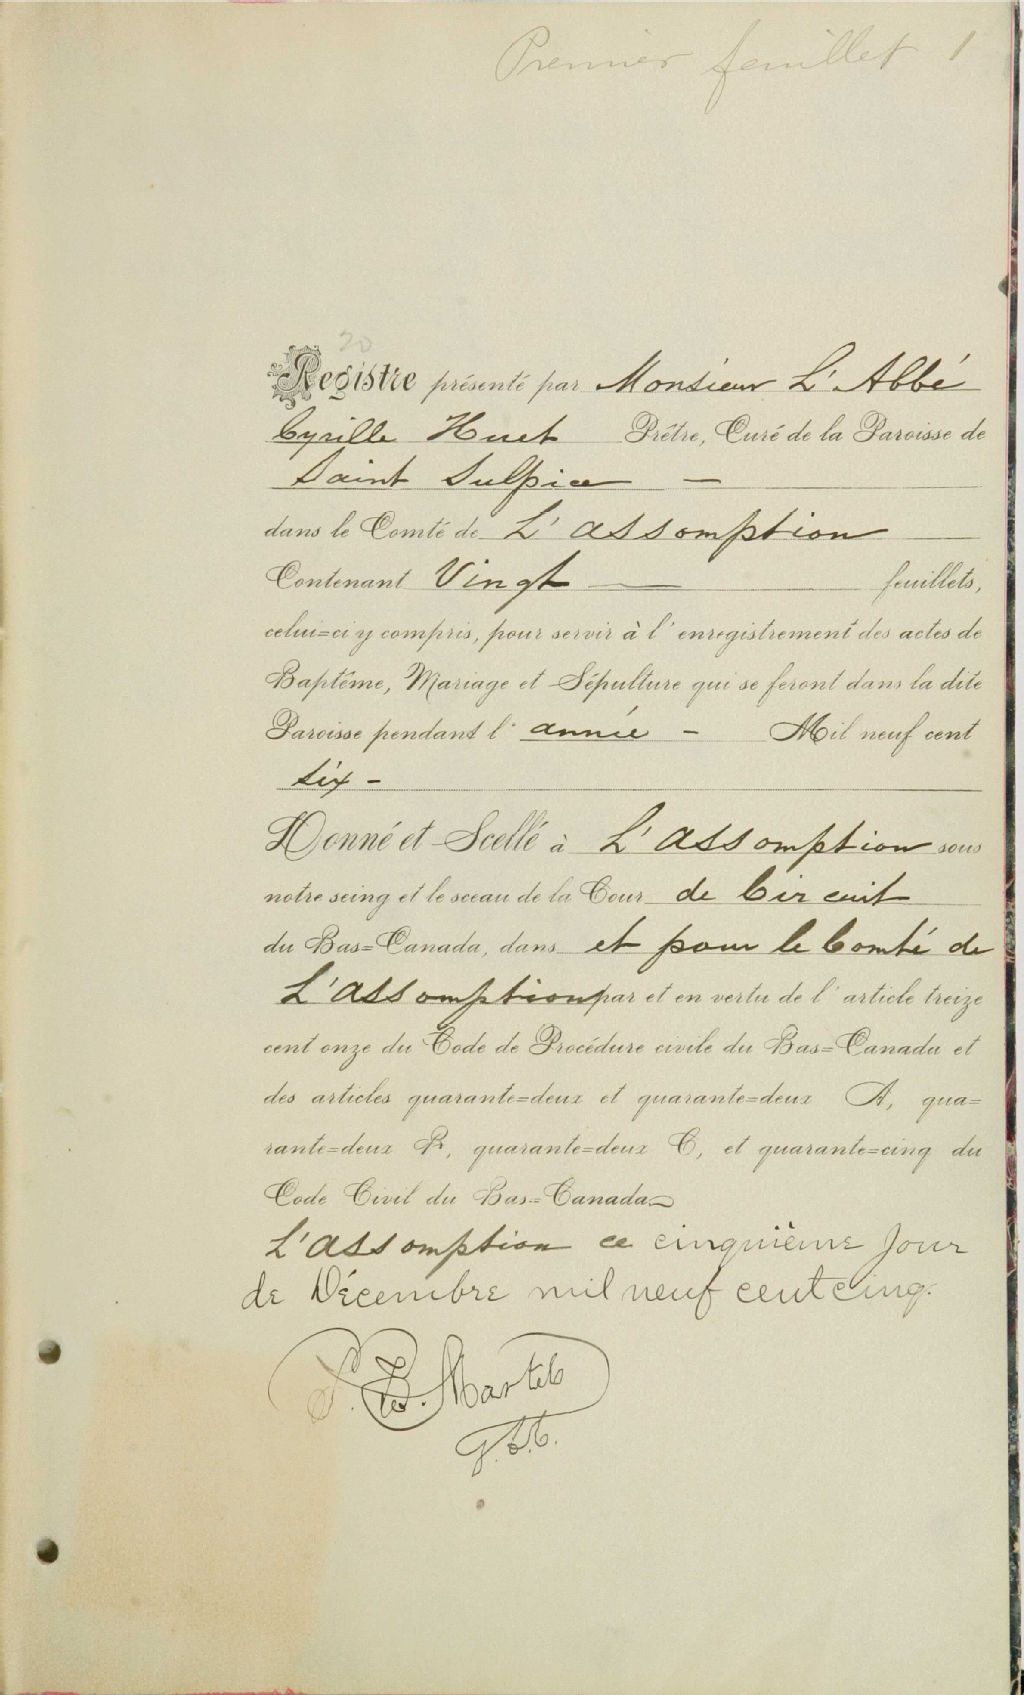 Premier feuillet 1
20
Registre présenté par Monsieur L'Abbé
Cyrille Huet Prêtre, Curé de la Paroisse de
Saint Sulpice —
dans le Comté de L'assomption
Contenant Vingt — feuillets,
celui=ci y compris, pour servir à l'enregistrement des actes de
Baptême, Mariage et Sépulture qui se feront dans la dite
Paroisse pendant l'année - Mil neuf cent
six -
Donné et Scellé à L'assomption sous
notre seing et le sceau de la Cour de Circuit
du Bas=Canada, dans et pour le Comté de
L'assomption par et en vertu de l'article treize
cent onze du Code de Procédure civile du Bas=Canada et
des articles quarante=deux et quarante=deux A, qua=
rante=deux B, quarante=deux C, et quarante=cinq du
Code Civil du Bas=Canada
L'assomption ce cinquième Jour
de Décembre mil neuf cent cinq.
Martel